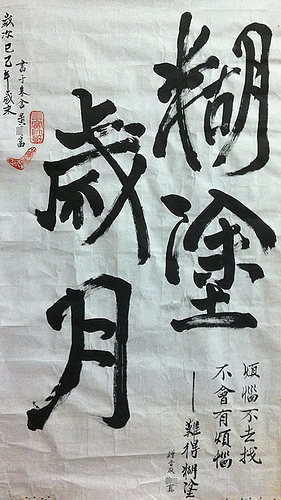 糊塗
歲月
煩惱不去找
不會有煩惱
—難得糊塗
歲次己乙年歲末
書于